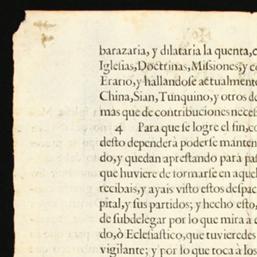 barazaria, y dilataria la quenta,
Iglesias, Doctrinas, Missiones, y
Erario, y hallandose actualmente
China, Sian, Tunquino, y otros de
mas que de contribuciones neces
4 Para que se logre el fin, co
desto dependerà poderse manten
do, y quedan aprestando parà pas
que huviere de formarse en aquel
recibais, y ayais visto estos despac
pital, y sus partidos; y hecho esto,
de subdelegar por lo que mira à
do, ò Eclesiastico, que tuvieredes
vigilante; y por lo que toca à los